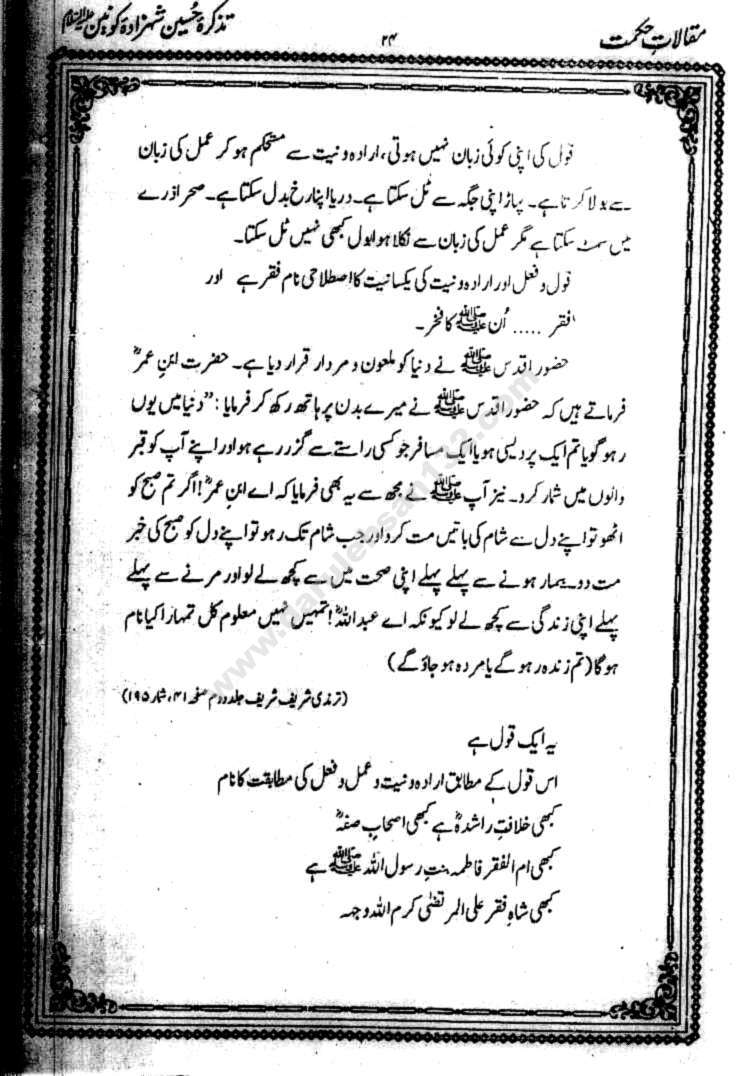 مقالاتِ حکمت
۲۴
تذکرۂ حُسین شہزادہ کونین علیہ السلام
قول کی اپنی کوئی زبان نہیں ہوتی، ارادہ و نیت سے مستحکم ہو کر عمل کی زبان
سے بولا کرتا ہے۔ پہاڑ اپنی جگہ سے ٹل سکتا ہے۔ دریا اپنا رخ بدل سکتا ہے۔ صحرا ذرے
میں سمٹ سکتا ہے مگر عمل کی زبان سے نکلا ہوا بول کبھی نہیں ٹل سکتا۔
قول و فعل اور ارادہ و نیت کی یکسانیت کا اصطلاحی نام فقر ہے اور
فقر ..... اُن ﷺ کا فخر۔
حضور اقدس ﷺ نے دنیا کو ملعون و مردار قرار دیا ہے۔ حضرت ابنِ عمرؓ
فرماتے ہیں کہ حضور اقدس ﷺ نے میرے بدن پر ہاتھ رکھ کر فرمایا: ”دنیا میں یوں
رہو گویا تم ایک پردیسی ہو یا ایک مسافر جو کسی راستے سے گزر رہے ہو اور اپنے آپ کو قبر
والوں میں شمار کرو۔ نیز آپ ﷺ نے مجھ سے یہ بھی فرمایا کہ اے ابنِ عمرؓ! اگر تم صبح کو
اٹھو تو اپنے دل سے شام کی باتیں مت کرو اور جب شام تک رہو تو اپنے دل کو صبح کی خبر
مت دو۔ بیمار ہونے سے پہلے پہلے اپنی صحت میں سے کچھ لے لو اور مرنے سے پہلے
پہلے اپنی زندگی سے کچھ لے لو کیونکہ اے عبداللہؓ! تمہیں نہیں معلوم کل تمہارا کیا نام
ہوگا (تم زندہ رہو گے یا مردہ ہو جاؤ گے)
(ترمذی شریف شریف جلد دوم صفحہ ۴۱، شمار ۱۹۵)
یہ ایک قول ہے
اس قول کے مطابق ارادہ و نیت و عمل و فعل کی مطابقت کا نام
کبھی خلافتِ راشدہؓ ہے کبھی اصحابِ صفہؓ
کبھی ام الفقر فاطمہ بنتِ رسول اللہ ﷺ ہے
کبھی شاہِ فقر علی المرتضٰی کرم اللہ وجہہ
www.darulehsan132.com